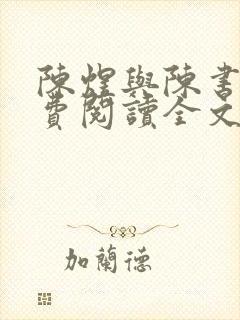 陳煌與陳書
費閱讀全文
加蘭德